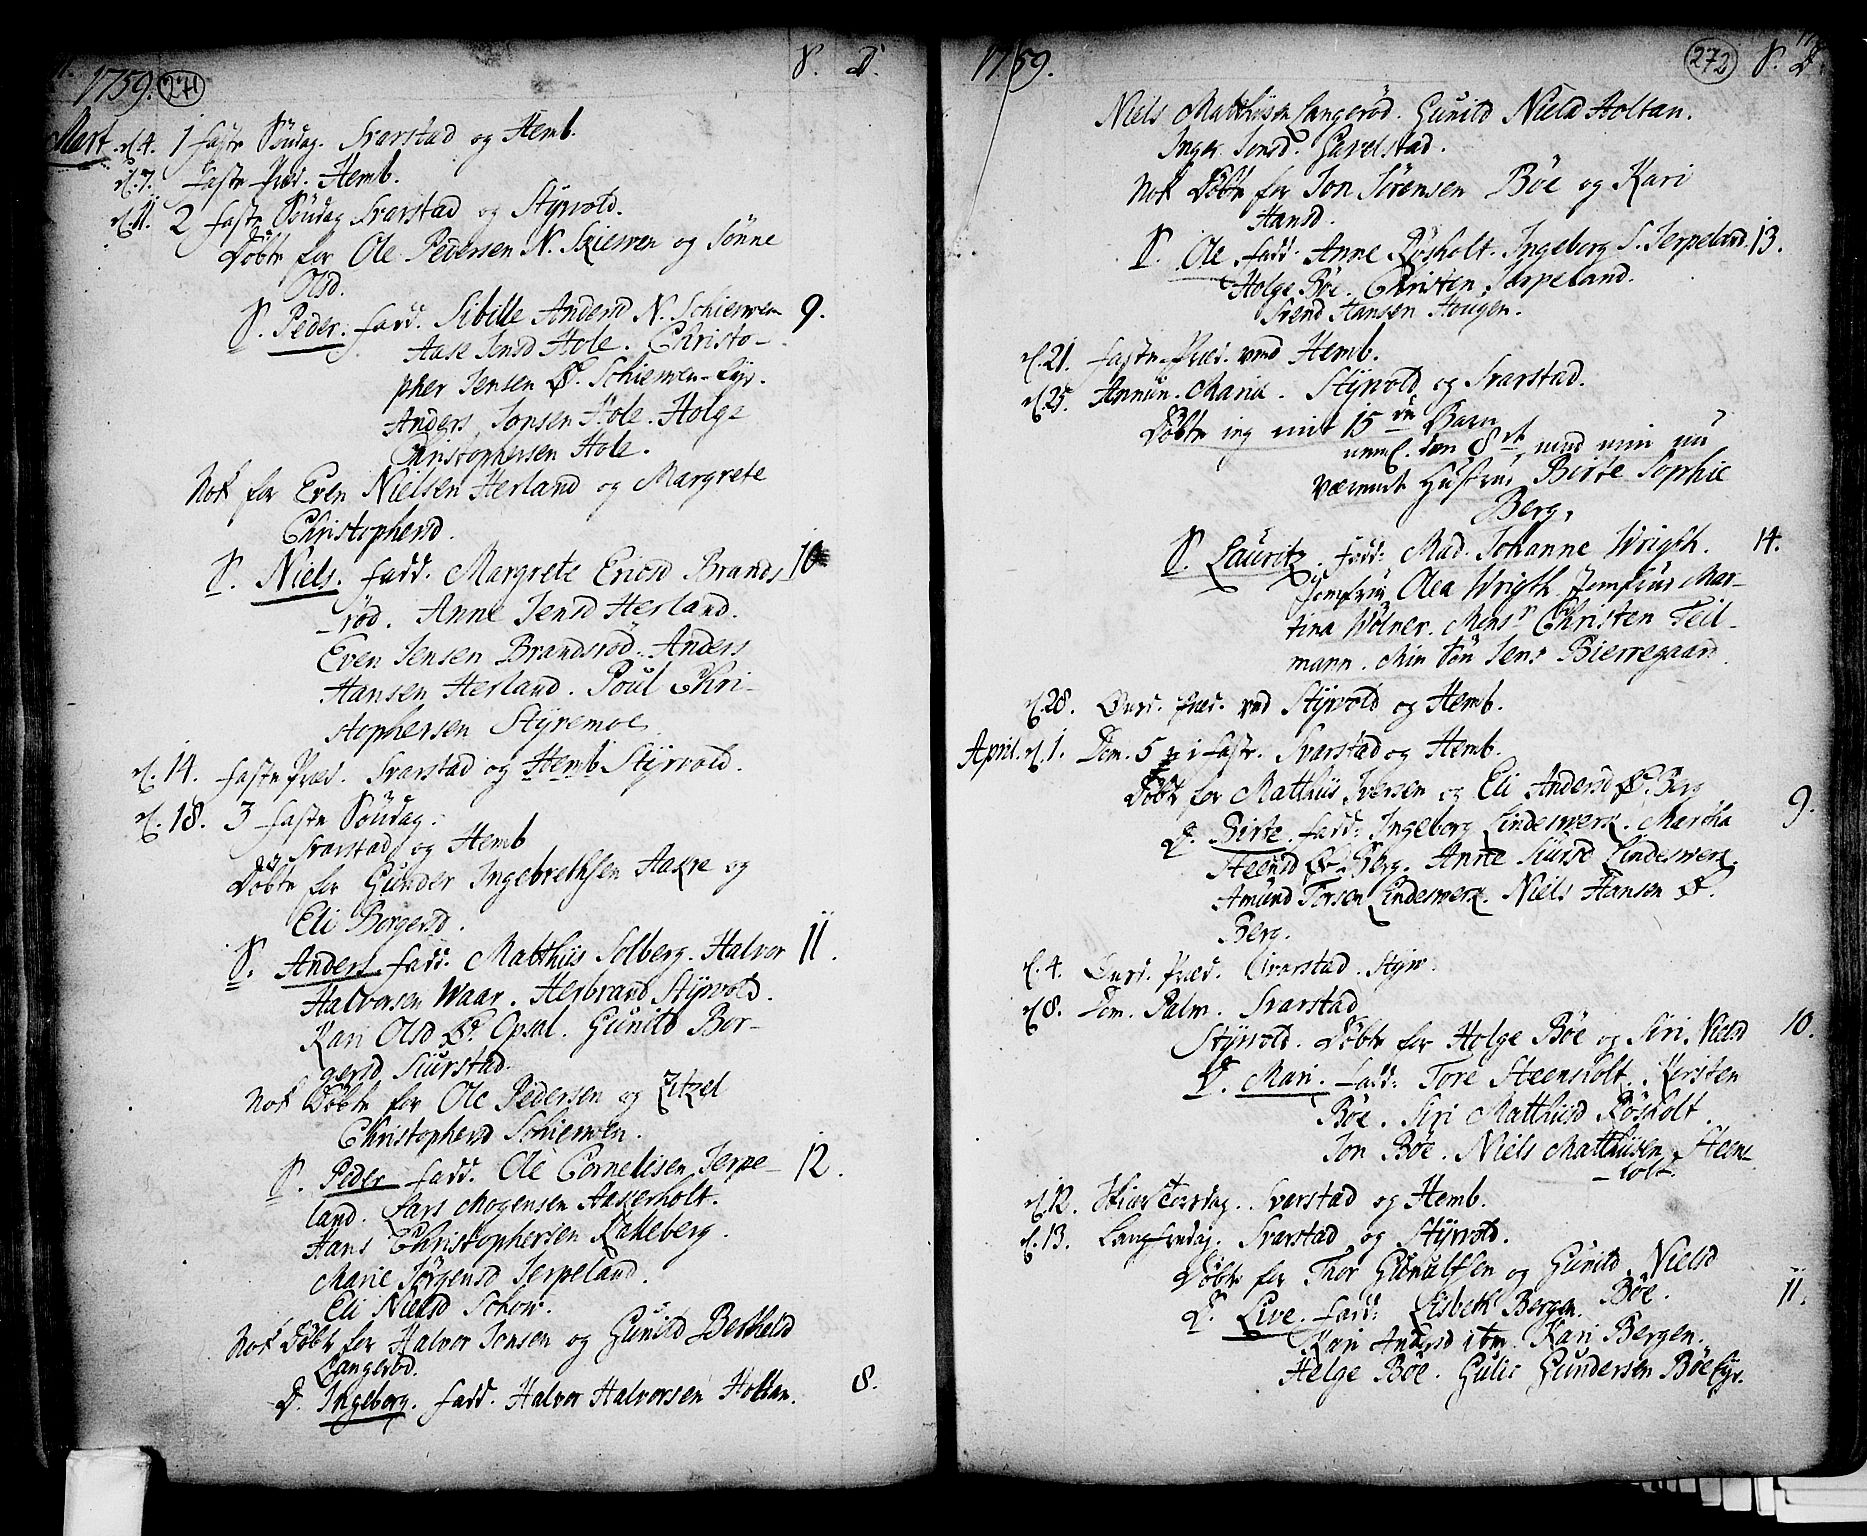 1759. 271 S. D.
Mart. d. 4. 1 faste Söndag. Svarstad og Hemb.
d. 7. faste Præd. Hemb.
d. 11. 2 faste Söndag Svarstad og Styrvold.
Döbte for Ole Pedersen N. Skierven og Sönne
Olsd.
S. Peder. fadd. Sibille Andersd N. Schierven 9.
Aase Jensd Hole. Christo-
pher Jensen Ø. Schierven-Eyr.
Anders Jonsen Hole. Holge
Christophersen Hole.
Nok for Even Nielsen Herland og Margrete
Christophersd.
S. Niels. fadd. Margrete Ericsd Brands 10
-röd. Anne Jensd Herland.
Even Jensen Brandsröd. Anders
Hansen Herland. Poul Chri-
stophersen Styremoe
d. 14. faste Præd. Svarstad og Hemb Styrvold.
d. 18. 3 faste Söndag.
Svarstad og Hemb
Döbte for Gunder Ingebrethsen Aakre og
Eli Borgersd.
S. Anders fadd. Matthiis Solberg. Halvor 11.
Halvorsen Waar. Herbrand Styrvold.
Kari Olsd Ø. Opsal. Gunild Bor-
gersd Siurstad.
Nok Döbte for Ole Pedersen og Zitzel
Christophersd Schierven.
S. Peder fadd. Ole Cornelisen Jerpe- 12.
land. Lars Mogensen Aakerholt.
Hans Christophersen Rakeberg.
Marie Jörgensd Jerpeland.
Eli Nielsd Schow.
Nok Döbte for Halvor Jonsen og Gunild Bertheld
Langeröd.
D. Ingeborg. fadd. Halvor Halvorsen Holtan. 8.
1759. 272 S. D.
Niels Matthiisen Langeröd. Gunild Nielsd Holtan.
Inger Jonsd. Gavelstad.
Nok Döbte for Jon Sörensen Böe og Kari
Hansd.
S. Ole fadd. Anne Rösholt. Ingeborg S. Jerpeland. 13.
Holge Böe. Christen Jerpeland.
Svend Hansen Hougen.
d. 21. faste-Præd. ved Hemb.
d. 25. Annun. Mariæ. Styrvold og Svarstad.
Döbte jeg mit 15de Barn
neml. den 8de med min nu
værende Hustrue Birte Sophie
Berg,
S. Lauritz. fadd: Mad. Johanne Wrigth. 14.
Jomfrue Olea Wrigth. Jomfrue Mar-
tina Wölner. Monsr Christen Teil-
mann. Min Sön Jens Bierregaard.
d. 28. Onsd. Præd. ved Styrvold og Hemb.
April. d. 1. Dom. 5 i faste. Svarstad og Hemb.
Döbte for Matthiis Iversen og Eli Andersd Ø. Berg
D. Birte. fadd: Ingeborg Lindeswerk. Martha 9.
Steensd Ø. Berg. Anne Siursd Lindeswerk.
Amund Torsen Lindeswerk. Niels Hansen Ø.
Berg.
d. 4. Onsd. Præd. Svarstad. Styrv.
d. 8. Dom. Palm. Svarstad
Styrvold. Döbte for Holge Böe og Siri Nielsd 10.
D. Mari. fadd: Tore Steensholt. Kirsten
Böe. Siri Matthiisd Rösholt.
Jon Böe. Niels Matthiisen Steens
-holt.
d. 12. Skiærtorsdag. Svarstad og Hemb.
d. 13. Langfredag. Svarstad og Styrvold.
Döbte for Thor Gunulfsen og Gunild Nielsd
Böe.
D. Live. fadd: Lisbeth Bergen. 11.
Kari Andersd ibm. Kari Bergen.
Helge Böe. Gulic Gundersen Böe Eyr.